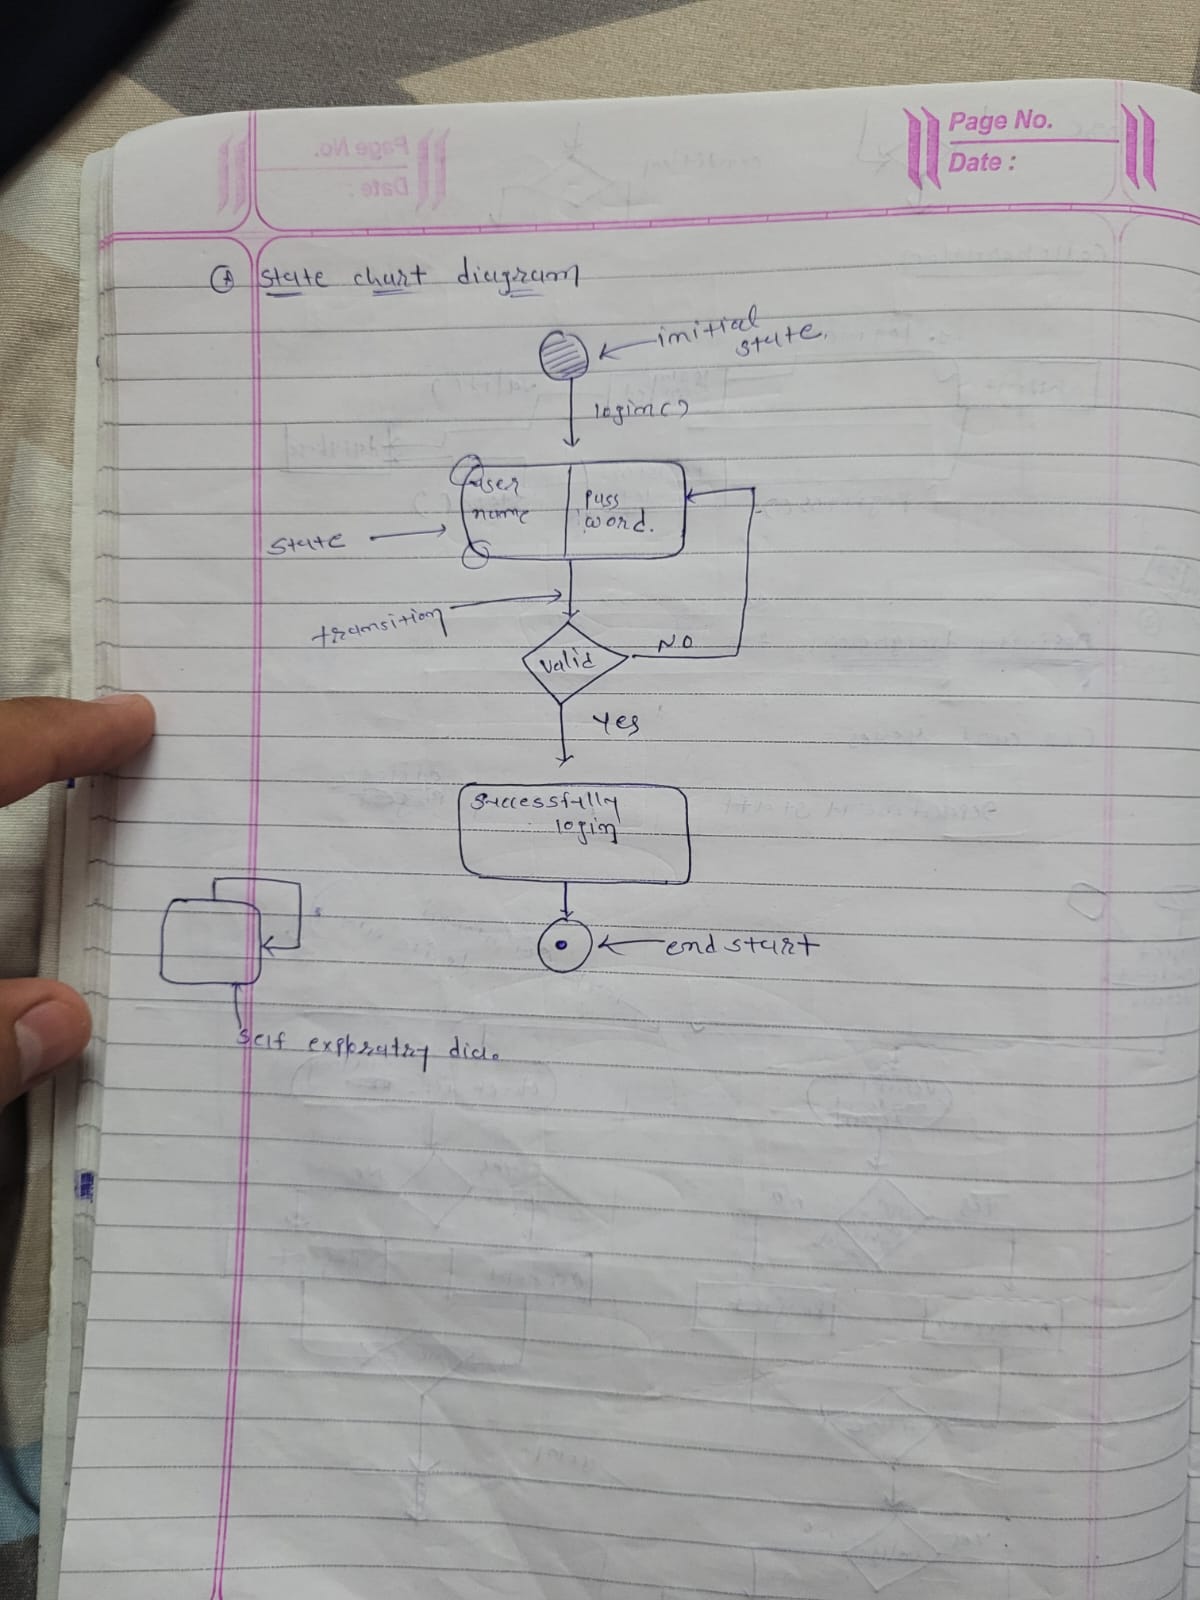 Page No.
Date :
State chart diagram
initial
state.
login()
User
name
Pass
word.
State
transition
valid
NO
Yes
Successfully
login
end start
Self